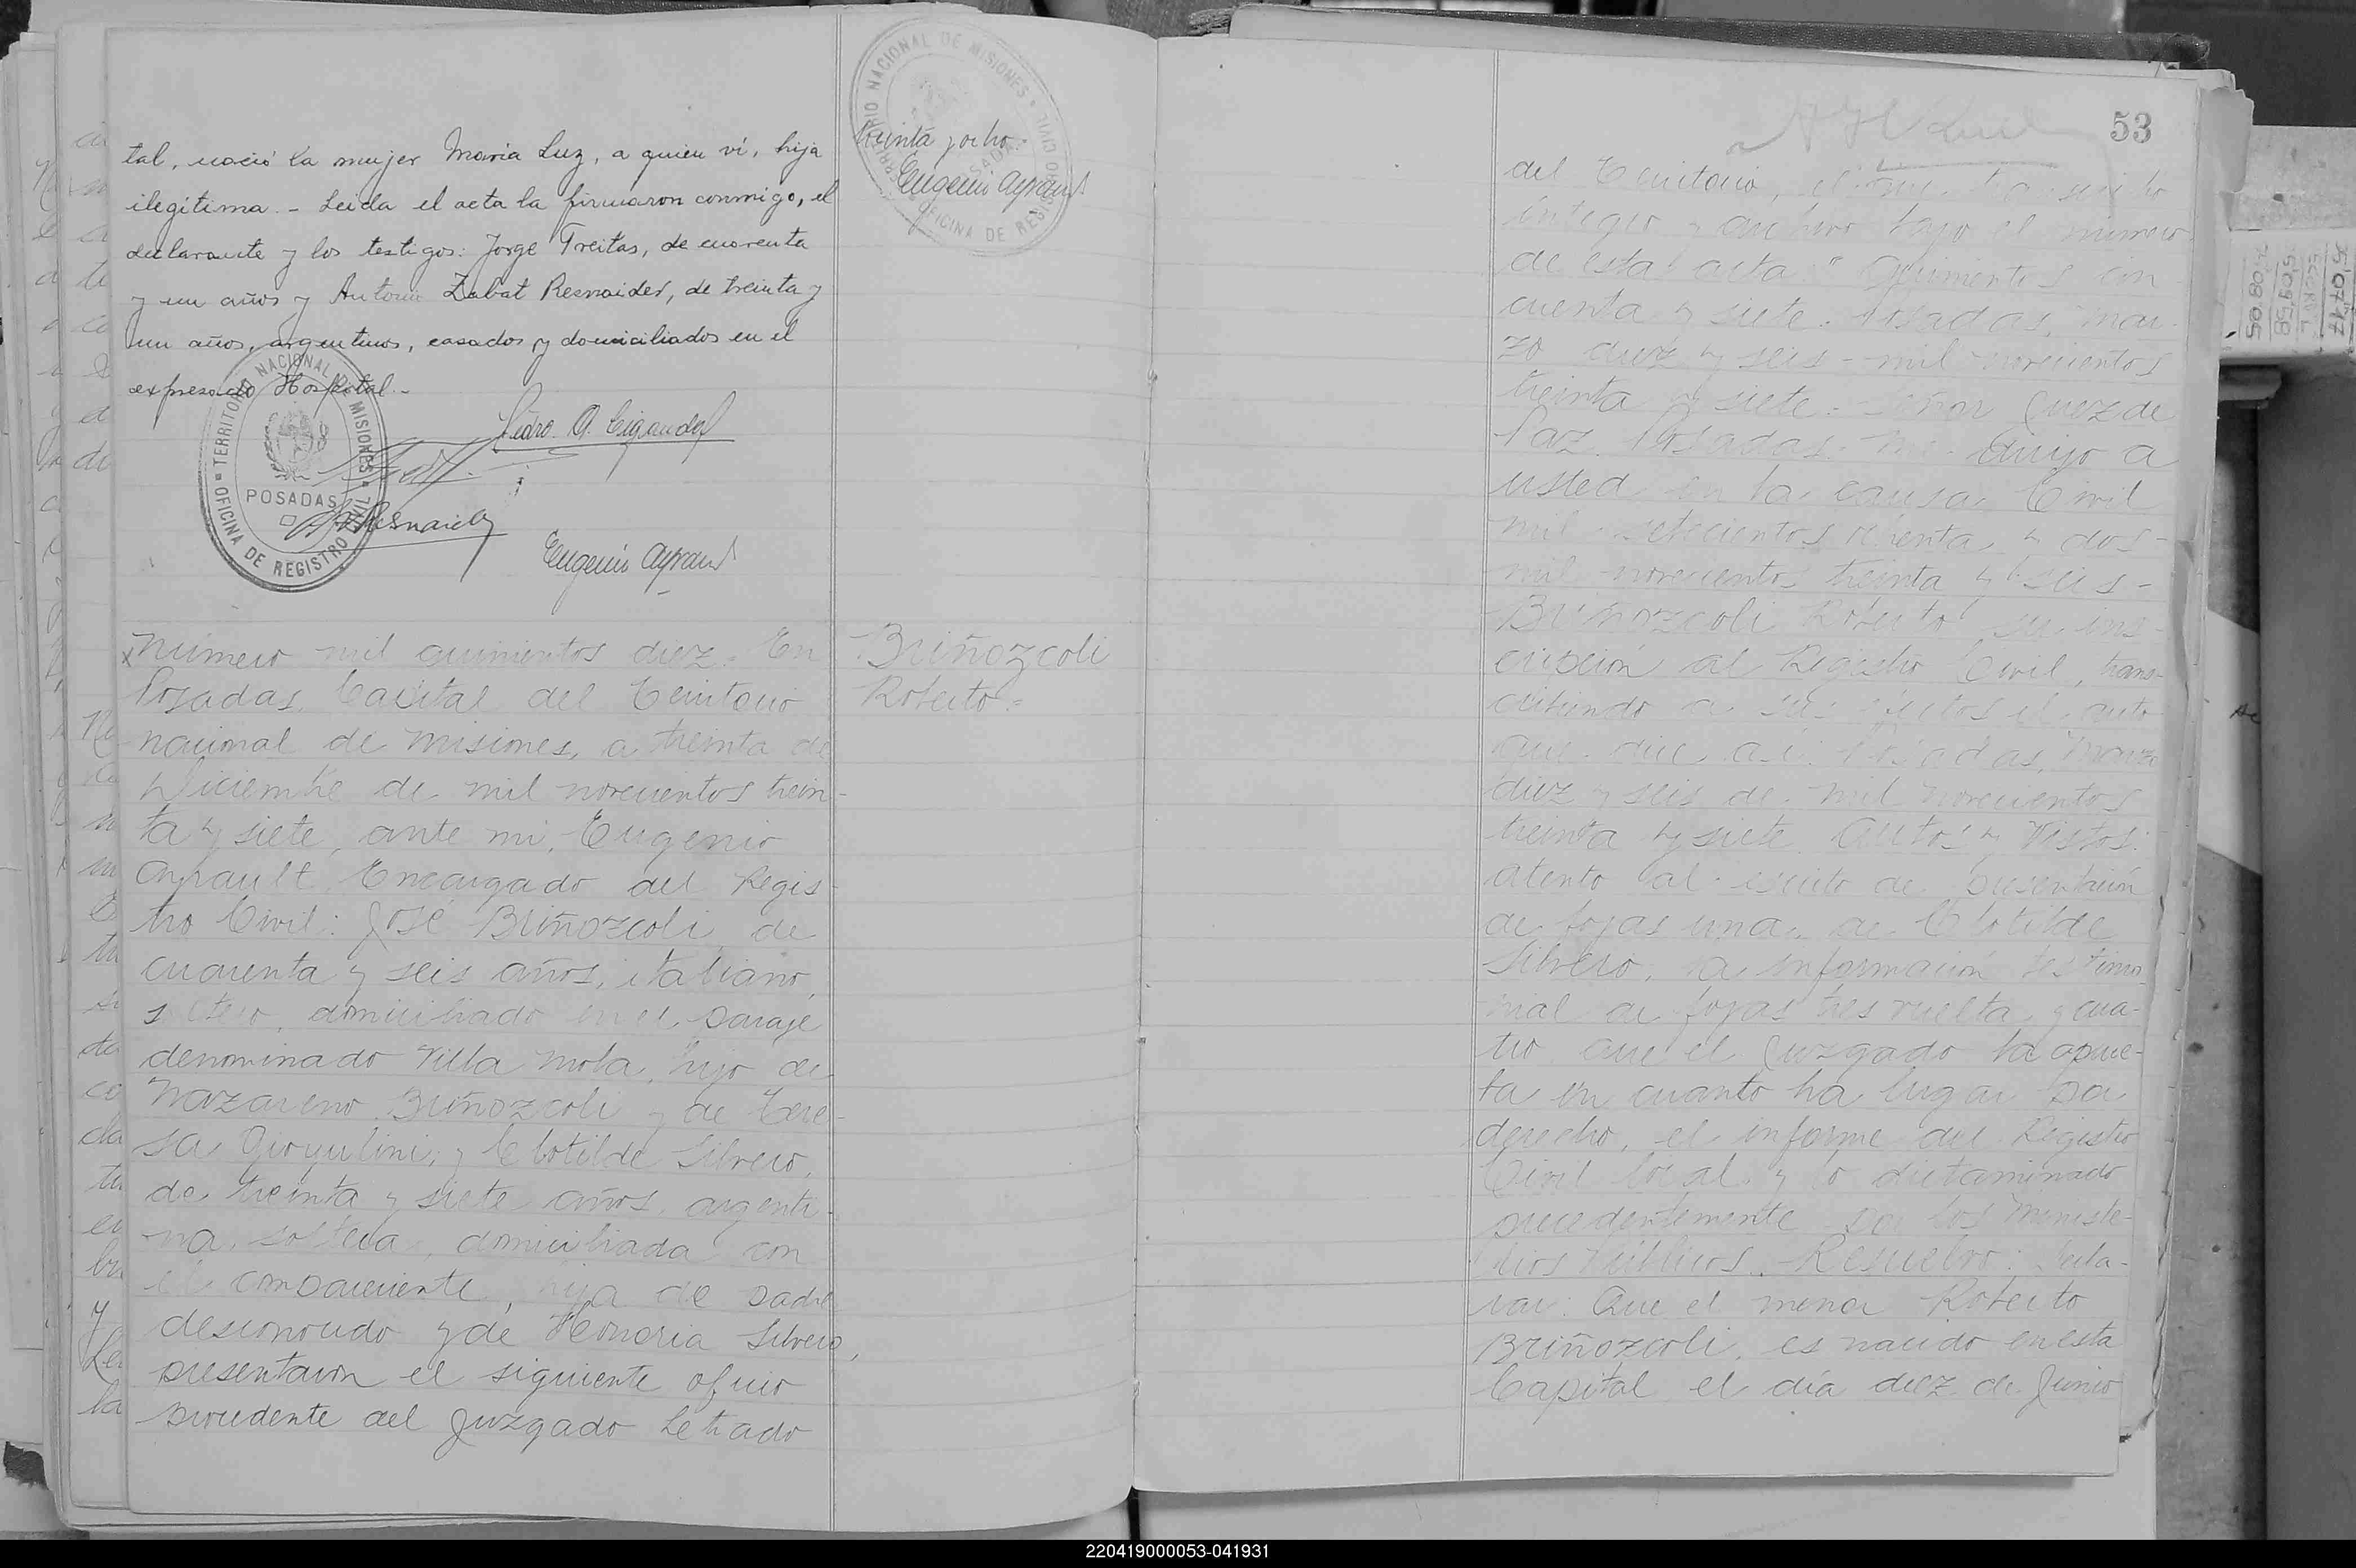 tal, nació la mujer Maria Luz, a quien ví, hija
ilegítima. - Leida el acta la firmaron conmigo, el
declarante y los testigos: Jorge Freitas, de cuarenta
y un años y Antonio Zabat Resnaider, de treinta y
un años, argentinos, casados y domiciliados en el
expresado Hospital.-
TERRITORIO NACIONAL DE MISIONES
POSADAS
OFICINA DE REGISTRO CIVIL
Eugenio Ayrault
TERRITORIO NACIONAL DE MISIONES
OFICINA DE REGISTRO CIVIL
treinta y ocho
Eugenio Ayrault
Número mil quinientos diez. En
Posadas, Capital del Territorio
nacional de Misiones, a treinta de
Diciembre de mil novecientos trein-
ta y siete, ante mi, Eugenio
Ayrault, Encargado del Regis-
tro Civil: José Briñozcoli, de
cuarenta y seis años, italiano,
soltero, domiciliado en el paraje
denominado Villa Mola, hijo de
Nazareno Briñozcoli y de Tere-
sa y Clotilde Silvero,
de treinta y siete años, argenti-
na, soltera, domiciliada con
el compareciente, hija de padre
desconocido y de Honoria Silvero,
presentaron el siguiente oficio
procedente del Juzgado Letrado
Briñozcoli
Roberto.=
53
del Territorio, el que
íntegro y archivo bajo el número
de esta acta. " Quinientos cin-
cuenta y siete. Posadas, Mar-
zo diez y seis - mil novecientos
treinta y siete. Señor Juez de
Paz. Posadas. Me dirijo a
usted en la causa Civil
mil setecientos y dos-
mil novecientos treinta y seis-
Briñozcoli Roberto su ins-
cripción al Registro Civil, trans-
cribiendo a sus efectos el auto
que dice así: Posadas, Marzo
diez y seis de mil novecientos
treinta y siete. Autos y Vistos:
atento al escrito de presentación
de fojas una, de Clotilde
Silvero, la información testimo-
nial de fojas tres vuelta y cua-
tro que el Juzgado la aprue-
ba en cuanto ha lugar por
derecho, el informe del Registro
Civil local y lo dictaminado
precedentemente por los Ministe-
rios Públicos. Resuelvo: Decla-
rar: Que el menor Roberto
Briñozcoli, es nacido en esta
Capital el día diez de Junio
220419000053-041931